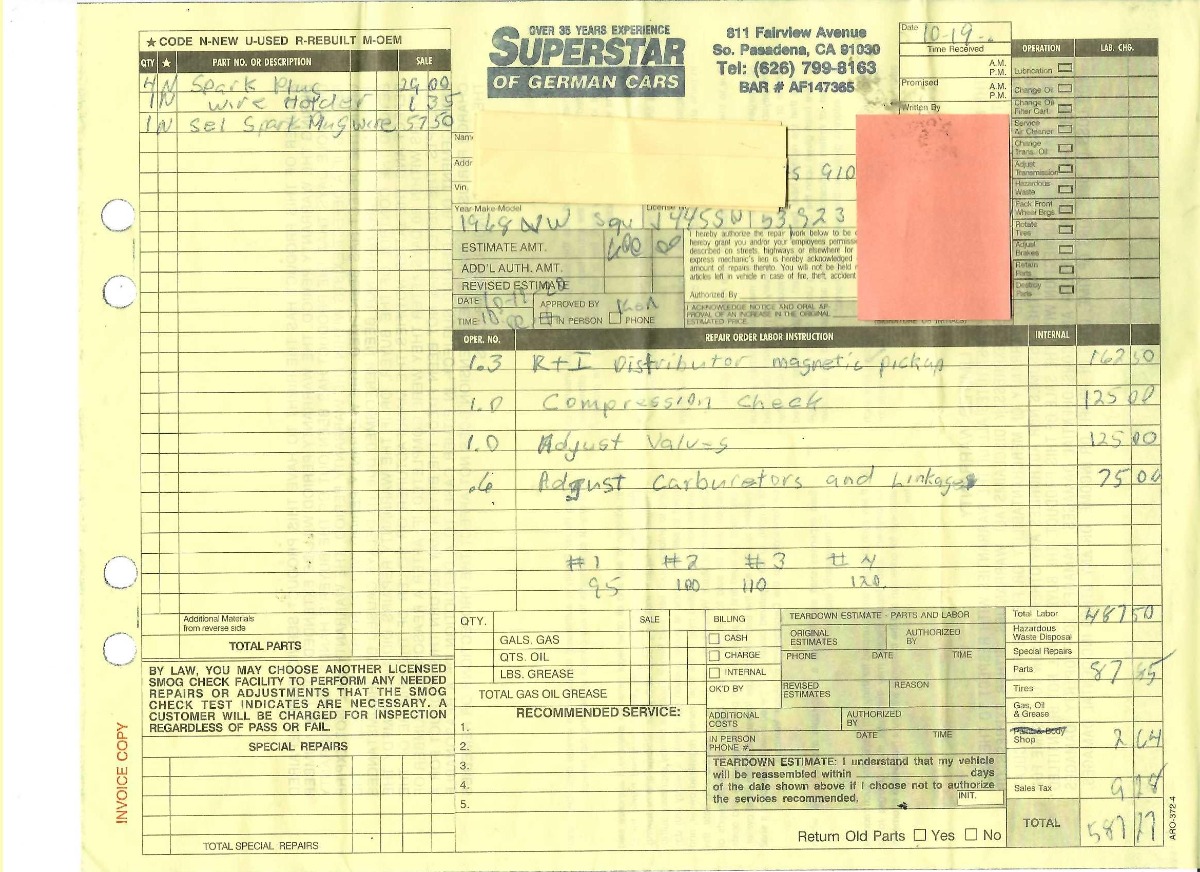 ★ CODE N-NEW U-USED R-REBUILT M-OEM
QTY ★ PART NO. OR DESCRIPTION SALE
4 N Spark Plug 29 00
1 N wire Holder 1 35
1 N set Spark Plug wire 57 50
OVER 35 YEARS EXPERIENCE
SUPERSTAR
OF GERMAN CARS
811 Fairview Avenue
So. Pasadena, CA 91030
Tel: (626) 799-8163
BAR # AF147365
Date 10-19-
Time Received
A.M.
P.M.
Promised A.M.
P.M.
Written By
OPERATION LAB. CHG.
Lubrication
Change Oil
Change Oil
Filter Cart.
Service
Air Cleaner
Change
Trans. Oil
Adjust
Transmission
Hazardous
Waste
Pack Front
Wheel Brgs
Rotate
Tires
Adjust
Brakes
Return
Parts
Destroy
Parts
Nam
Addr
910
Vin
Year-Make-Model
1968 VW Squ
ESTIMATE AMT.
ADD'L AUTH. AMT.
REVISED ESTIMATE
DATE
APPROVED BY
TIME
IN PERSON PHONE
I hereby authorize the repair work below to be
hereby grant you and/or your employees permiss
described on streets, highways or elsewhere for
express mechanic's lien is hereby acknowledged
amount of repairs thereto. You will not be held
articles left in vehicle in case of fire, theft, accident
Authorized By
I ACKNOWLEDGE NOTICE AND ORAL AP-
PROVAL OF AN INCREASE IN THE ORIGINAL
ESTIMATED PRICE.
OPER. NO. REPAIR ORDER LABOR INSTRUCTION INTERNAL
1.3 R+I Distributor magnetic pickup 162 50
1.0 Compression check 125 00
1.0 Adjust Valves 125 00
.6 Adjust Carburetors and Linkage 75 00
#1 #2 #3 #4
95 100 110 120
Additional Materials
from reverse side
TOTAL PARTS
BY LAW, YOU MAY CHOOSE ANOTHER LICENSED
SMOG CHECK FACILITY TO PERFORM ANY NEEDED
REPAIRS OR ADJUSTMENTS THAT THE SMOG
CHECK TEST INDICATES ARE NECESSARY. A
CUSTOMER WILL BE CHARGED FOR INSPECTION
REGARDLESS OF PASS OR FAIL.
SPECIAL REPAIRS
TOTAL SPECIAL REPAIRS
INVOICE COPY
QTY. SALE
GALS. GAS
QTS. OIL
LBS. GREASE
TOTAL GAS OIL GREASE
BILLING
CASH
CHARGE
INTERNAL
OK'D BY
RECOMMENDED SERVICE:
1.
2.
3.
4.
5.
TEARDOWN ESTIMATE - PARTS AND LABOR
ORIGINAL
ESTIMATES
AUTHORIZED
BY
PHONE DATE TIME
REVISED
ESTIMATES
REASON
ADDITIONAL
COSTS
AUTHORIZED
BY
IN PERSON
PHONE #
DATE TIME
TEARDOWN ESTIMATE: I understand that my vehicle
will be reassembled within days
of the date shown above if I choose not to authorize
the services recommended.
INIT.
Return Old Parts Yes No
Total Labor 487 50
Hazardous
Waste Disposal
Special Repairs
Parts 87 85
Tires
Gas, Oil
& Grease
Shop 2 64
Sales Tax 9 28
TOTAL 587 27
ARO-372-4